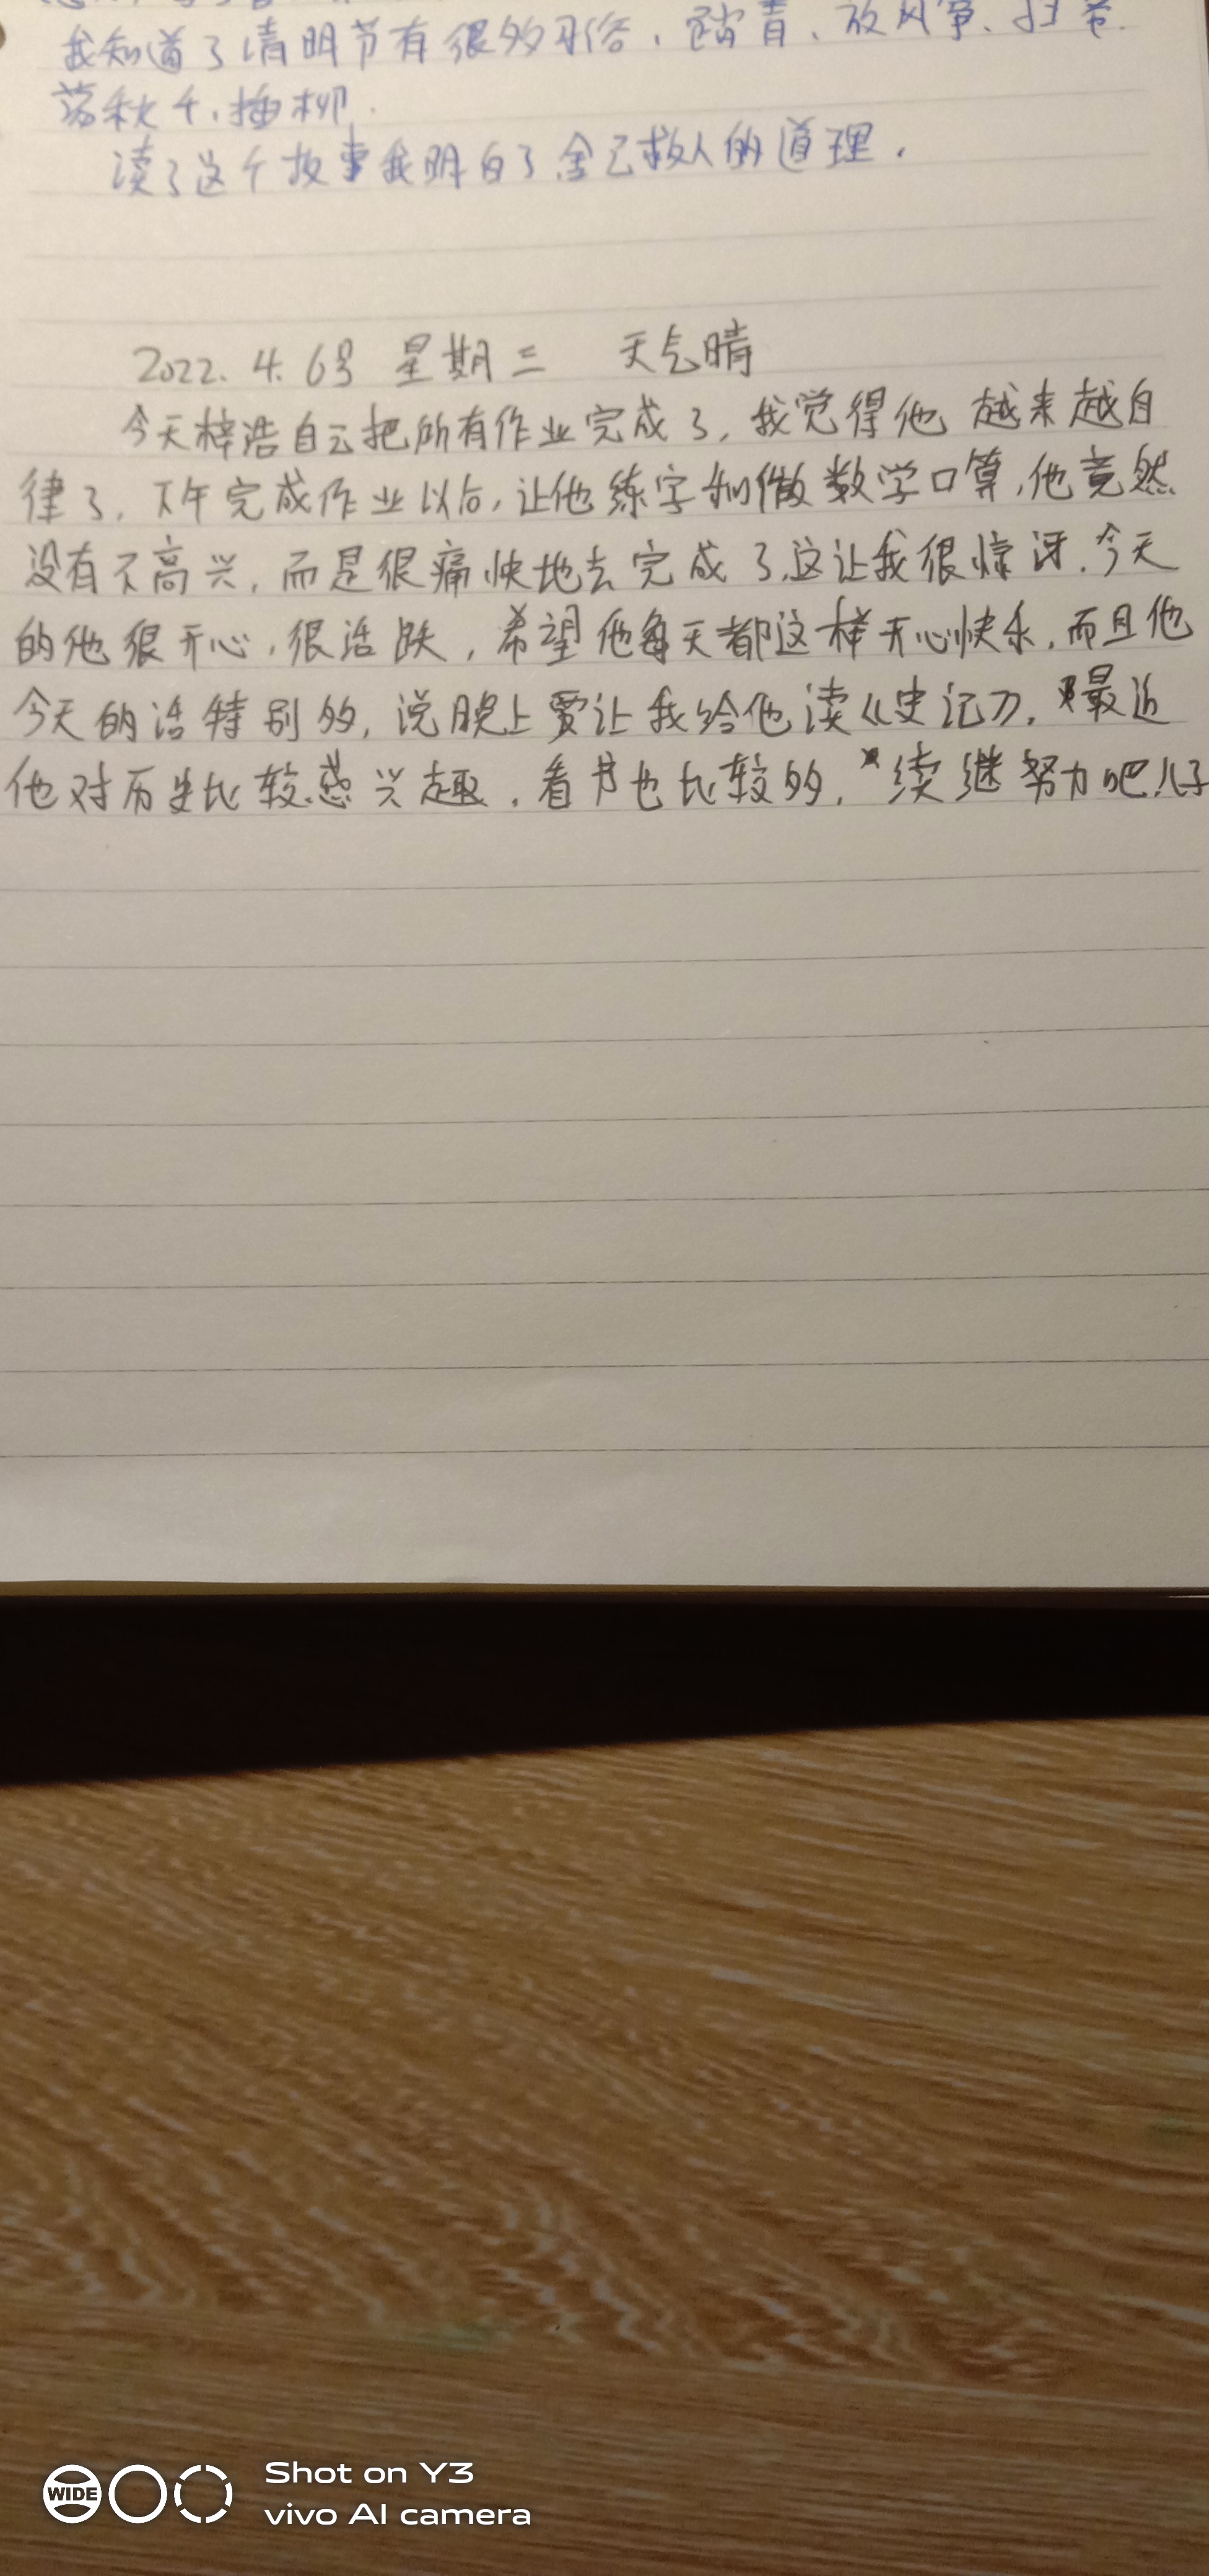 我知道了清明节有很多习俗，踏青、放风筝、扫墓.
荡秋千、插柳.
读了这个故事我明白了舍己救人的道理.
2022.4.6号 星期三 天气晴
今天梓浩自己把所有作业完成了，我觉得他越来越自
律了，下午完成作业以后，让他练字和做数学口算，他竟然
没有不高兴，而是很痛快地去完成了，这让我很惊讶.今天
的他很开心，很活跃，希望他每天都这样开心快乐.而且他
今天的话特别多，说晚上要让我给他读《史记》，最近
他对历史比较感兴趣，看书也比较多，续继努力吧儿子
WIDE
Shot on Y3
vivo AI camera